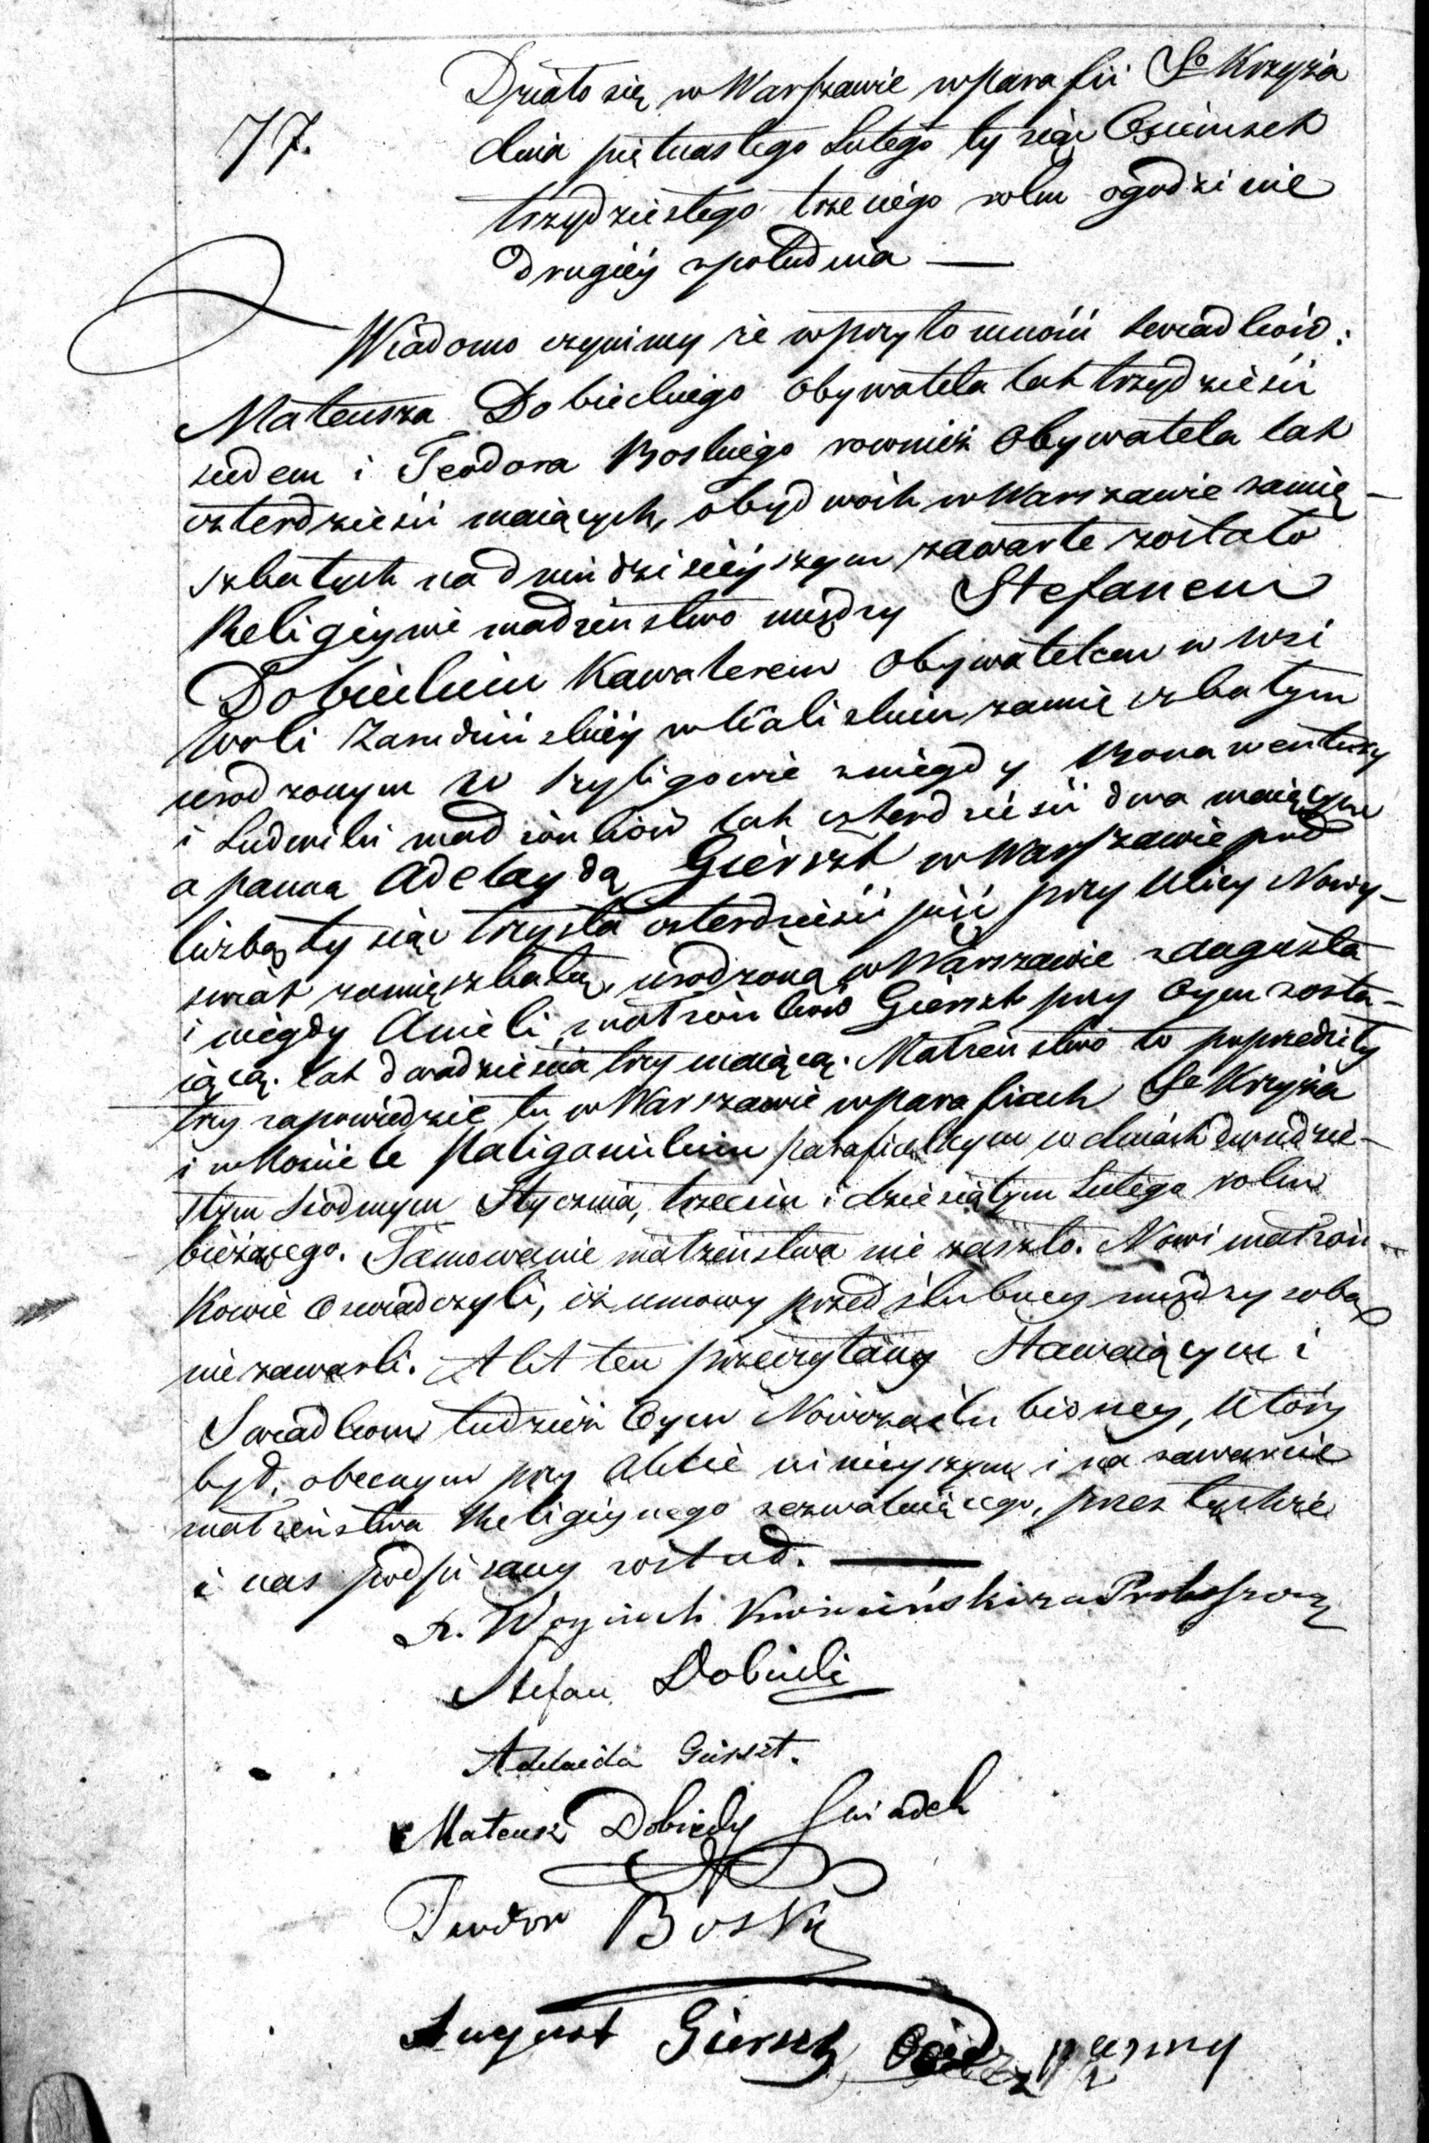 77.
Działo się w Warszawie w parafii Sgo Krzyża
dnia piętnastego Lutego tysiąc Ośmset
trzydziestego trzeciego roku o godzinie
drugiéy z południa —
Wiadomo czynimy że w przytomności świadków:
Mateusza Dobieckiego Obywatela lat trzydzieści
siedem i Teodora Boskiego rownież Obywatela lat
czterdzieści maiących, obydwóch w Warszawie zamię-
szkałych na dniu dzisieyszym zawarte zostało
Religiyne małżeństwo między Stefanem
Dobieckim Kawalerem Obywatelem w wsi
Woli w Kaliskiem zamięszkałym
urodzonym w niegdy Bonawentury
i Ludwiki małżonków lat czterdzieści dwa maiącym
a panną Adelaydą Gierszt w Warszawie pod
liczbą tysiąc trzysta czterdzieści pięć przy Ulicy Nowy-
świat zamięszkałą, urodzoną w Warszawie z Augusta
i niegdy Anieli małżonków Gierszt przy Oycu zosta-
iącą. lat dwadzieścia trzy maiącą. Małżeństwo to poprzedziły
trzy zapowiedzie tu w Warszawie w parafiach Sgo Krzyża
i w Kościele parafialnym w dniach dwudzie-
stym siódmym Stycznia, trzecim i dziesiątym Lutego roku
bieżącego. Tamowanie małżeństwa nie zaszło. Nowi małżon-
kowie Oświadczyli, iż umowy przedślubney między sobą
nie zawarli. Akt ten przeczytany Stawaiącym i
Świadkom tudzież Oycu Nowozaślubioney, który
był obecnym przy Akcie ninieyszym i na zawarcie
małżeństwa Religiynego zezwalaiącego, przez tychże
i nas podpisany został. —
X. Woyciech za Proboszcza
Stefan Dobiecki
Adelaida Gierszt.
Mateusz Dobiecky Swiadek
Teodor Boski
August Gierszt, Ociec panny